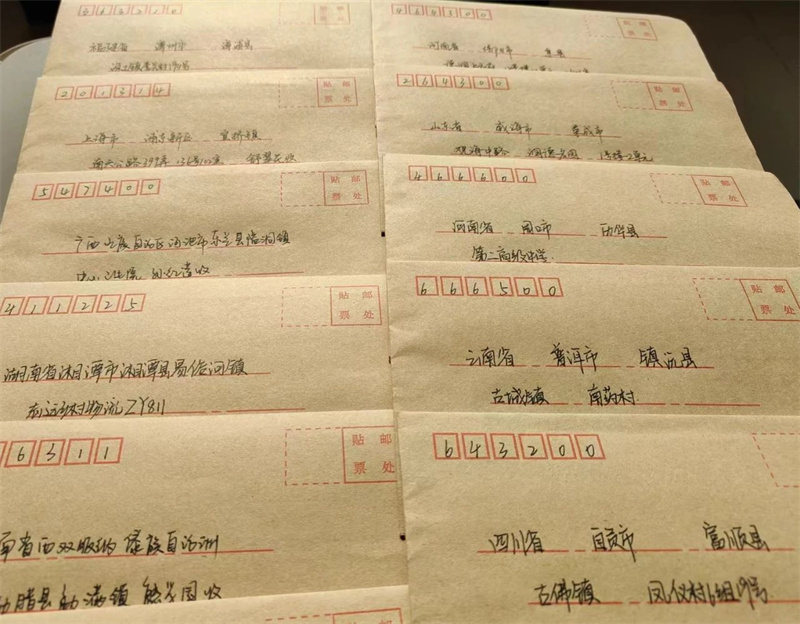 福建省 漳州市 漳浦县
河南省 信阳市 息县
201314
贴邮
票处
上海市 浦东新区 宣桥镇
南六公路399弄
264300
贴邮
票处
山东省 威海市 荣成市
观海中路
547400
贴邮
票处
广西壮族自治区河池市东兰县隘洞镇
收
466600
贴邮
票处
河南省 周口市 西华县
第二高级中学
411225
贴邮
票处
湖南省湘潭市湘潭县易俗河镇
物流ZY811
666500
贴邮
票处
云南省 普洱市 镇沅县
古城镇 南药村
6311
贴邮
票处
南省西双版纳 傣族自治洲
勐腊县勐满镇 收
643200
贴邮
票处
四川省 自贡市 富顺县
古佛镇 凤仪村6组19号